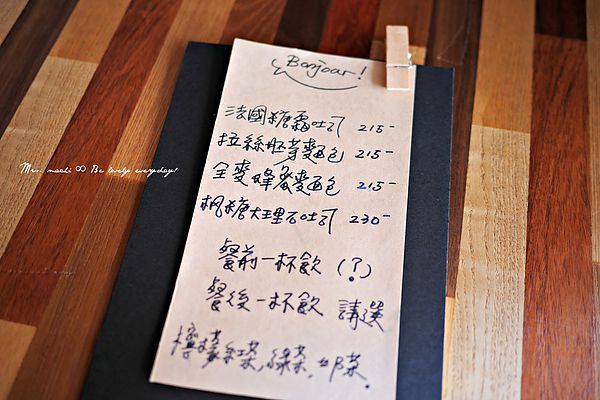 Bonjour!
法國糖霜吐司 215-
拉絲胚芽麵包 215-
全麥蜂蜜麵包 215-
楓糖大理石吐司 230-
餐前一杯飲 (?)
餐後一杯飲 請選
檸檬紅茶,綠茶,奶茶.
Mrs. machi ∞ Be lovely everyday!